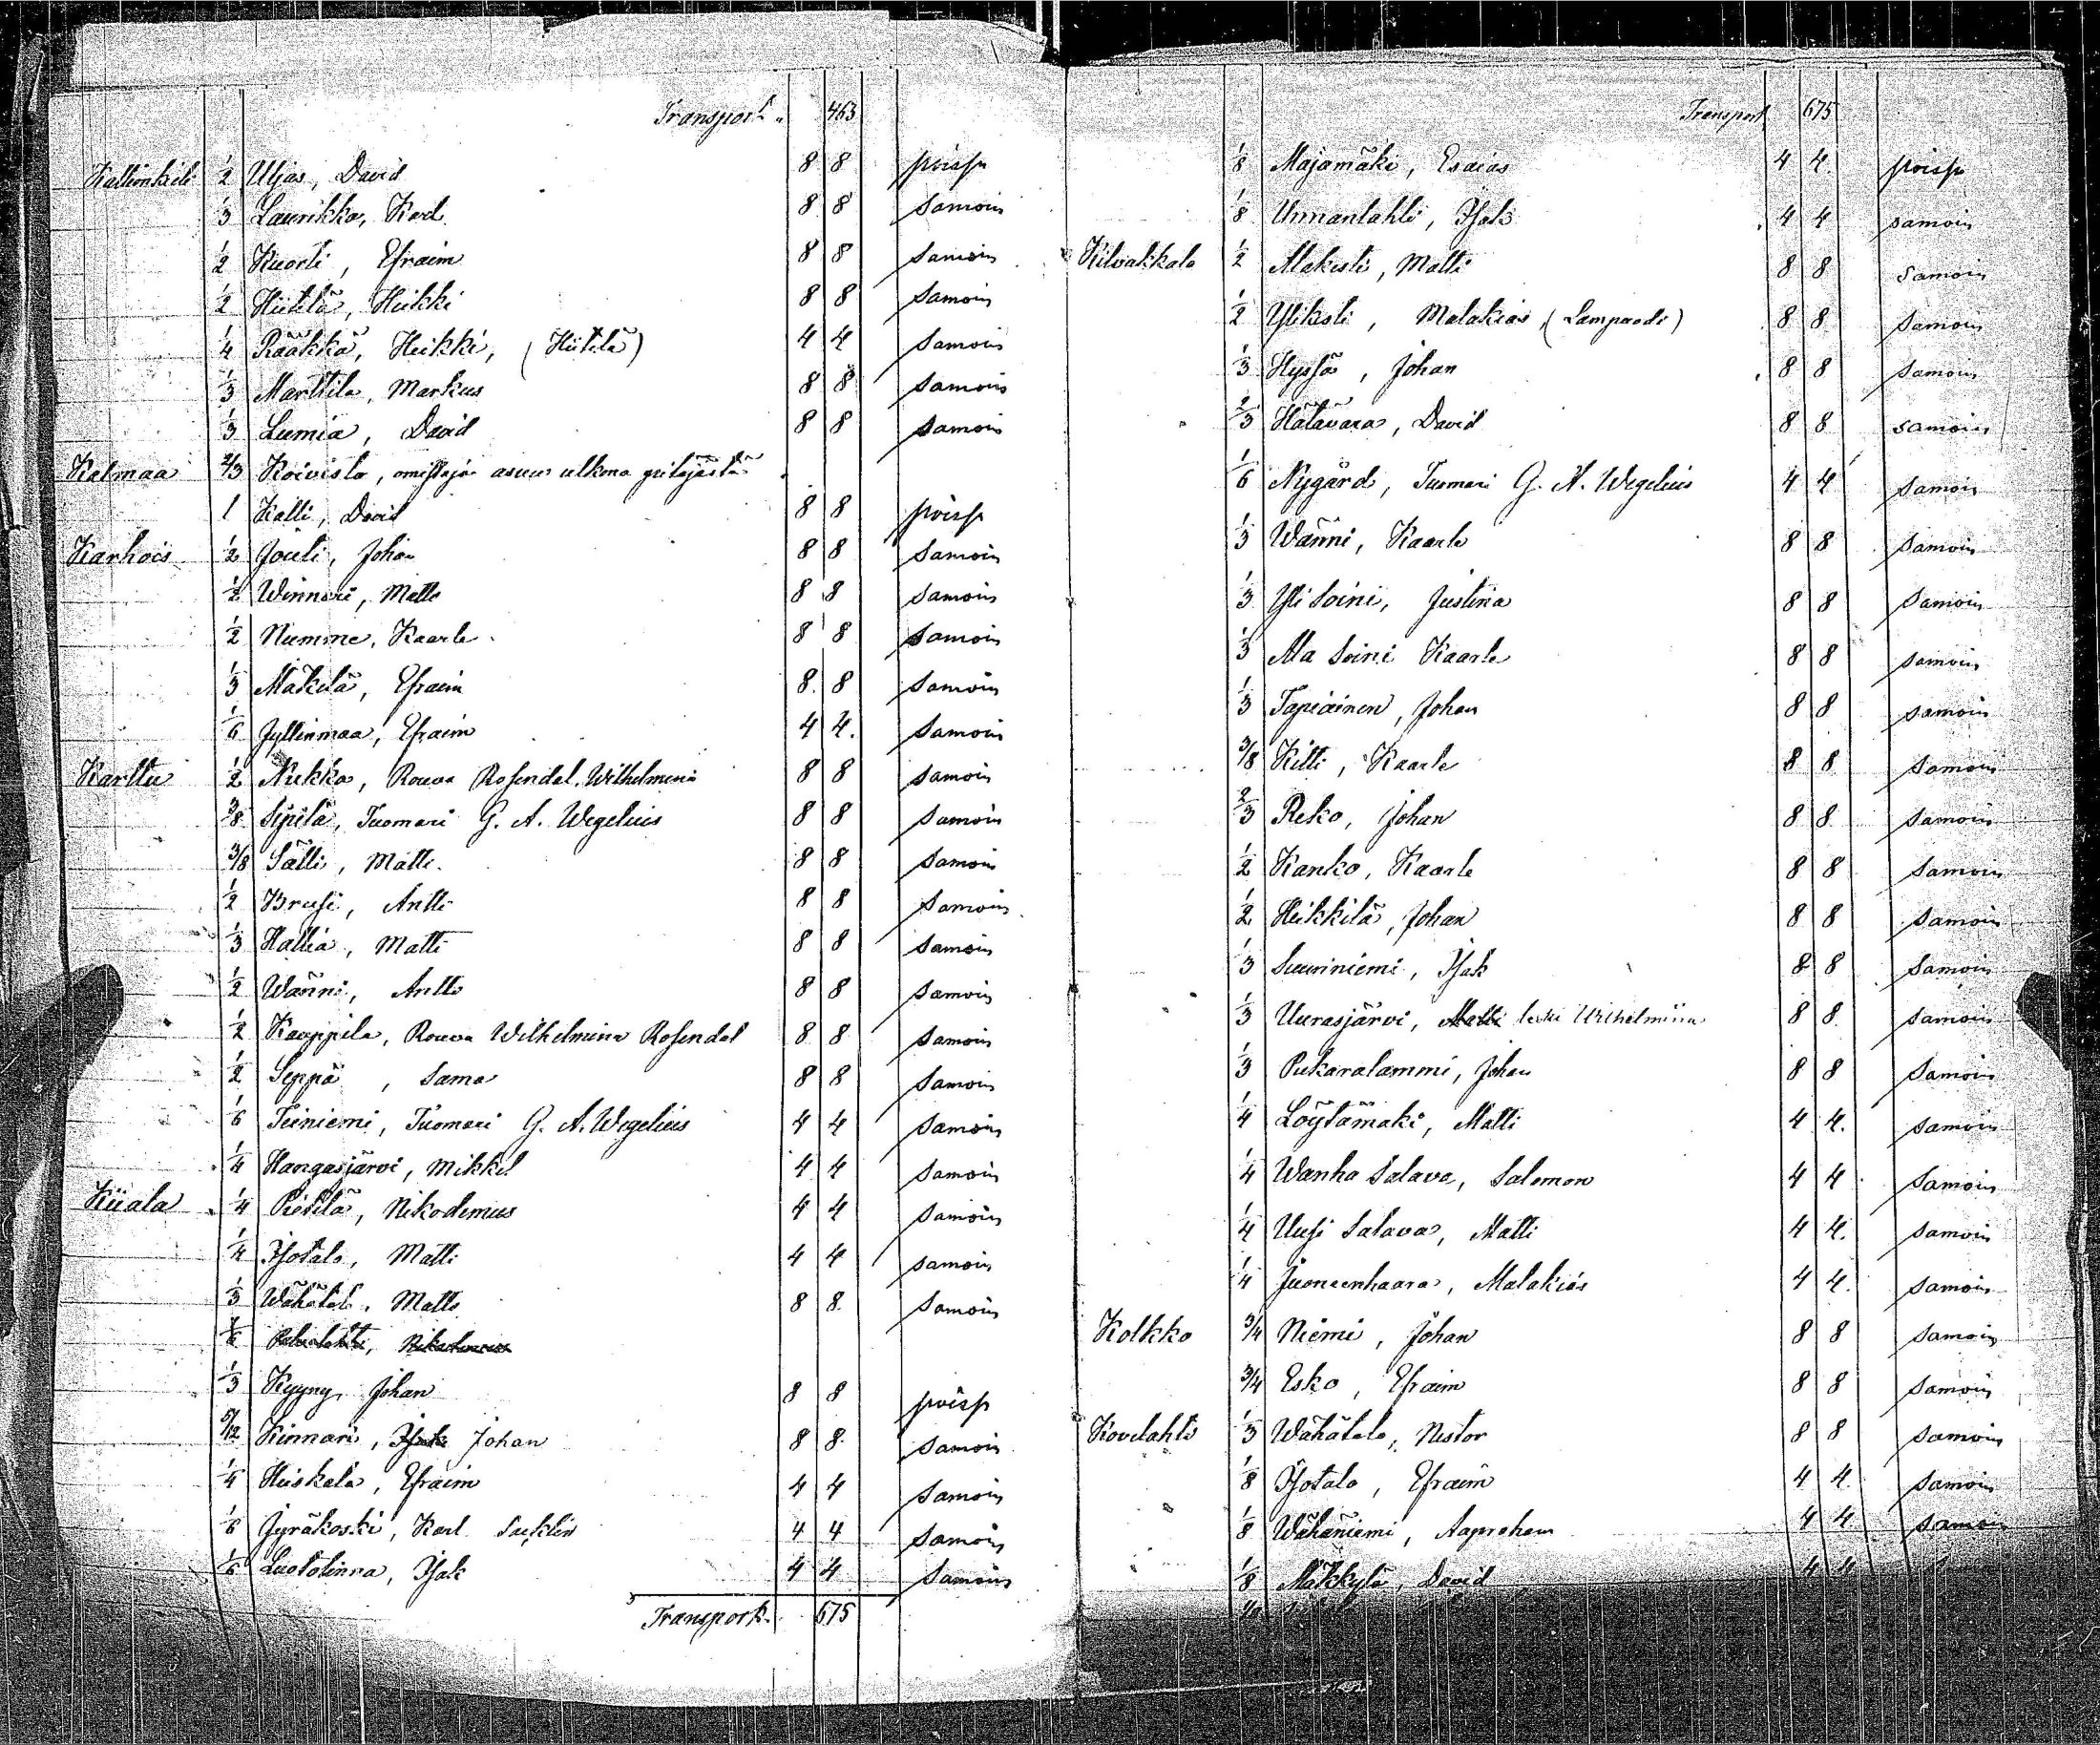 Transport „ 463
Kallinkili ½ Uljas, David 8 8 poissa
⅓ Laurikka, Karl 8 8 Samoin
½ Kuorti, Efraim 8 8 Samoin
½ Hiitelä, Heikki 8 8 Samoin
¼ Rääkkä, Heikki, (Hiitelä) 4 4 Samoin
⅓ Marttila, Markus 8 8 Samoin
⅓ Lumia, David 8 8 Samoin
Kalmaa ⅔ Koivisto, omistaja asuu ulkona pitäjästä
1 Kalli, David 8 8 poissa
Karhois ½ Jouti, Johan 8 8 Samoin
½ Winnari, Matts 8 8 Samoin
½ Numme, Kaarle 8 8 Samoin
⅓ Mäkelä, Efraim 8 8 Samoin
⅙ Jyllinmaa, Efraim 4 4 Samoin
Karttu ½ Nekka, Rouva Rosendal Wilhelmina 8 8 Samoin
⅜ Sipilä, Tuomari G. A. Wegelius 8 8 Samoin
⅜ Sälli, Matti 8 8 Samoin
½ Brusi, Antti 8 8 Samoin
⅓ Hallia, Matti 8 8 Samoin
½ Wänni, Antto 8 8 Samoin
½ Kauppila, Rouva Wilhelmina Rosendal 8 8 Samoin
½ Seppä, Sama 8 8 Samoin
⅙ Teiniemi, Tuomari G. A. Wegelius 4 4 Samoin
¼ Hangasjärvi, Mikkel 4 4 Samoin
Kiiala ¼ Pietilä, Nikodemus 4 4 Samoin
¼ Isotalo, Matti 4 4 Samoin
⅓ Wähätalo, Matts 8 8 Samoin
Nikodemus
⅓ Kyyny, Johan 8 8 poissa
5/12 Kinnari, Isak Johan 8 8 Samoin
¼ Heiskala, Efraim 4 4 Samoin
⅙ Jyräkoski, Karl Saeklin 4 4 Samoin
⅙ Luotolinna, Isak 4 4 Samoin
Transport. 675
Transport 675
⅛ Majamäki, Esaias 4 4 poissa
⅛ Unnanlahti, Isak 4 4 Samoin
Kilvakkala ½ Alakesti, Matti 8 8 Samoin
½ Ylikesti, Malakias (Lampuodi) 8 8 Samoin
⅓ Hyssä, Johan 8 8 Samoin
⅔ Hätävara, David 8 8 Samoin
⅙ Nygård, Tuomari G. A. Wegelius 4 4 Samoin
⅓ Wänni, Kaarle 8 8 Samoin
⅓ Yli Soini, Justina 8 8 Samoin
⅓ Ala Soini Kaarle 8 8 Samoin
⅓ Tapiainen, Johan 8 8 Samoin
⅜ Kitti, Kaarle 8 8 Samoin
⅔ Reko, Johan 8 8 Samoin
½ Kanko, Kaarle 8 8 Samoin
½ Heikkilä, Johan 8 8 Samoin
⅓ Suuriniemi, Isak 8 8 Samoin
⅓ Uurasjärvi, Matti leski Wilhelmiina 8 8 Samoin
⅓ Pukaralammi, Johan 8 8 Samoin
¼ Löytämäki, Matti 4 4 Samoin
¼ Wanha Salava, Salomon 4 4 Samoin
¼ Uusi Salava, Matti 4 4 Samoin
¼ Juoneenhaara, Malakias 4 4 Samoin
Kolkko ¾ Niemi, Johan 8 8 Samoin
¾ Esko, Efraim 8 8 Samoin
Kovelahti ⅓ Wähätalo, Nestor 8 8 Samoin
⅛ Isotalo, Efraim 4 4 Samoin
⅛ Wähäniemi, Aapraham 4 4 Samoin
⅛ Mäkkylä, David 4 4